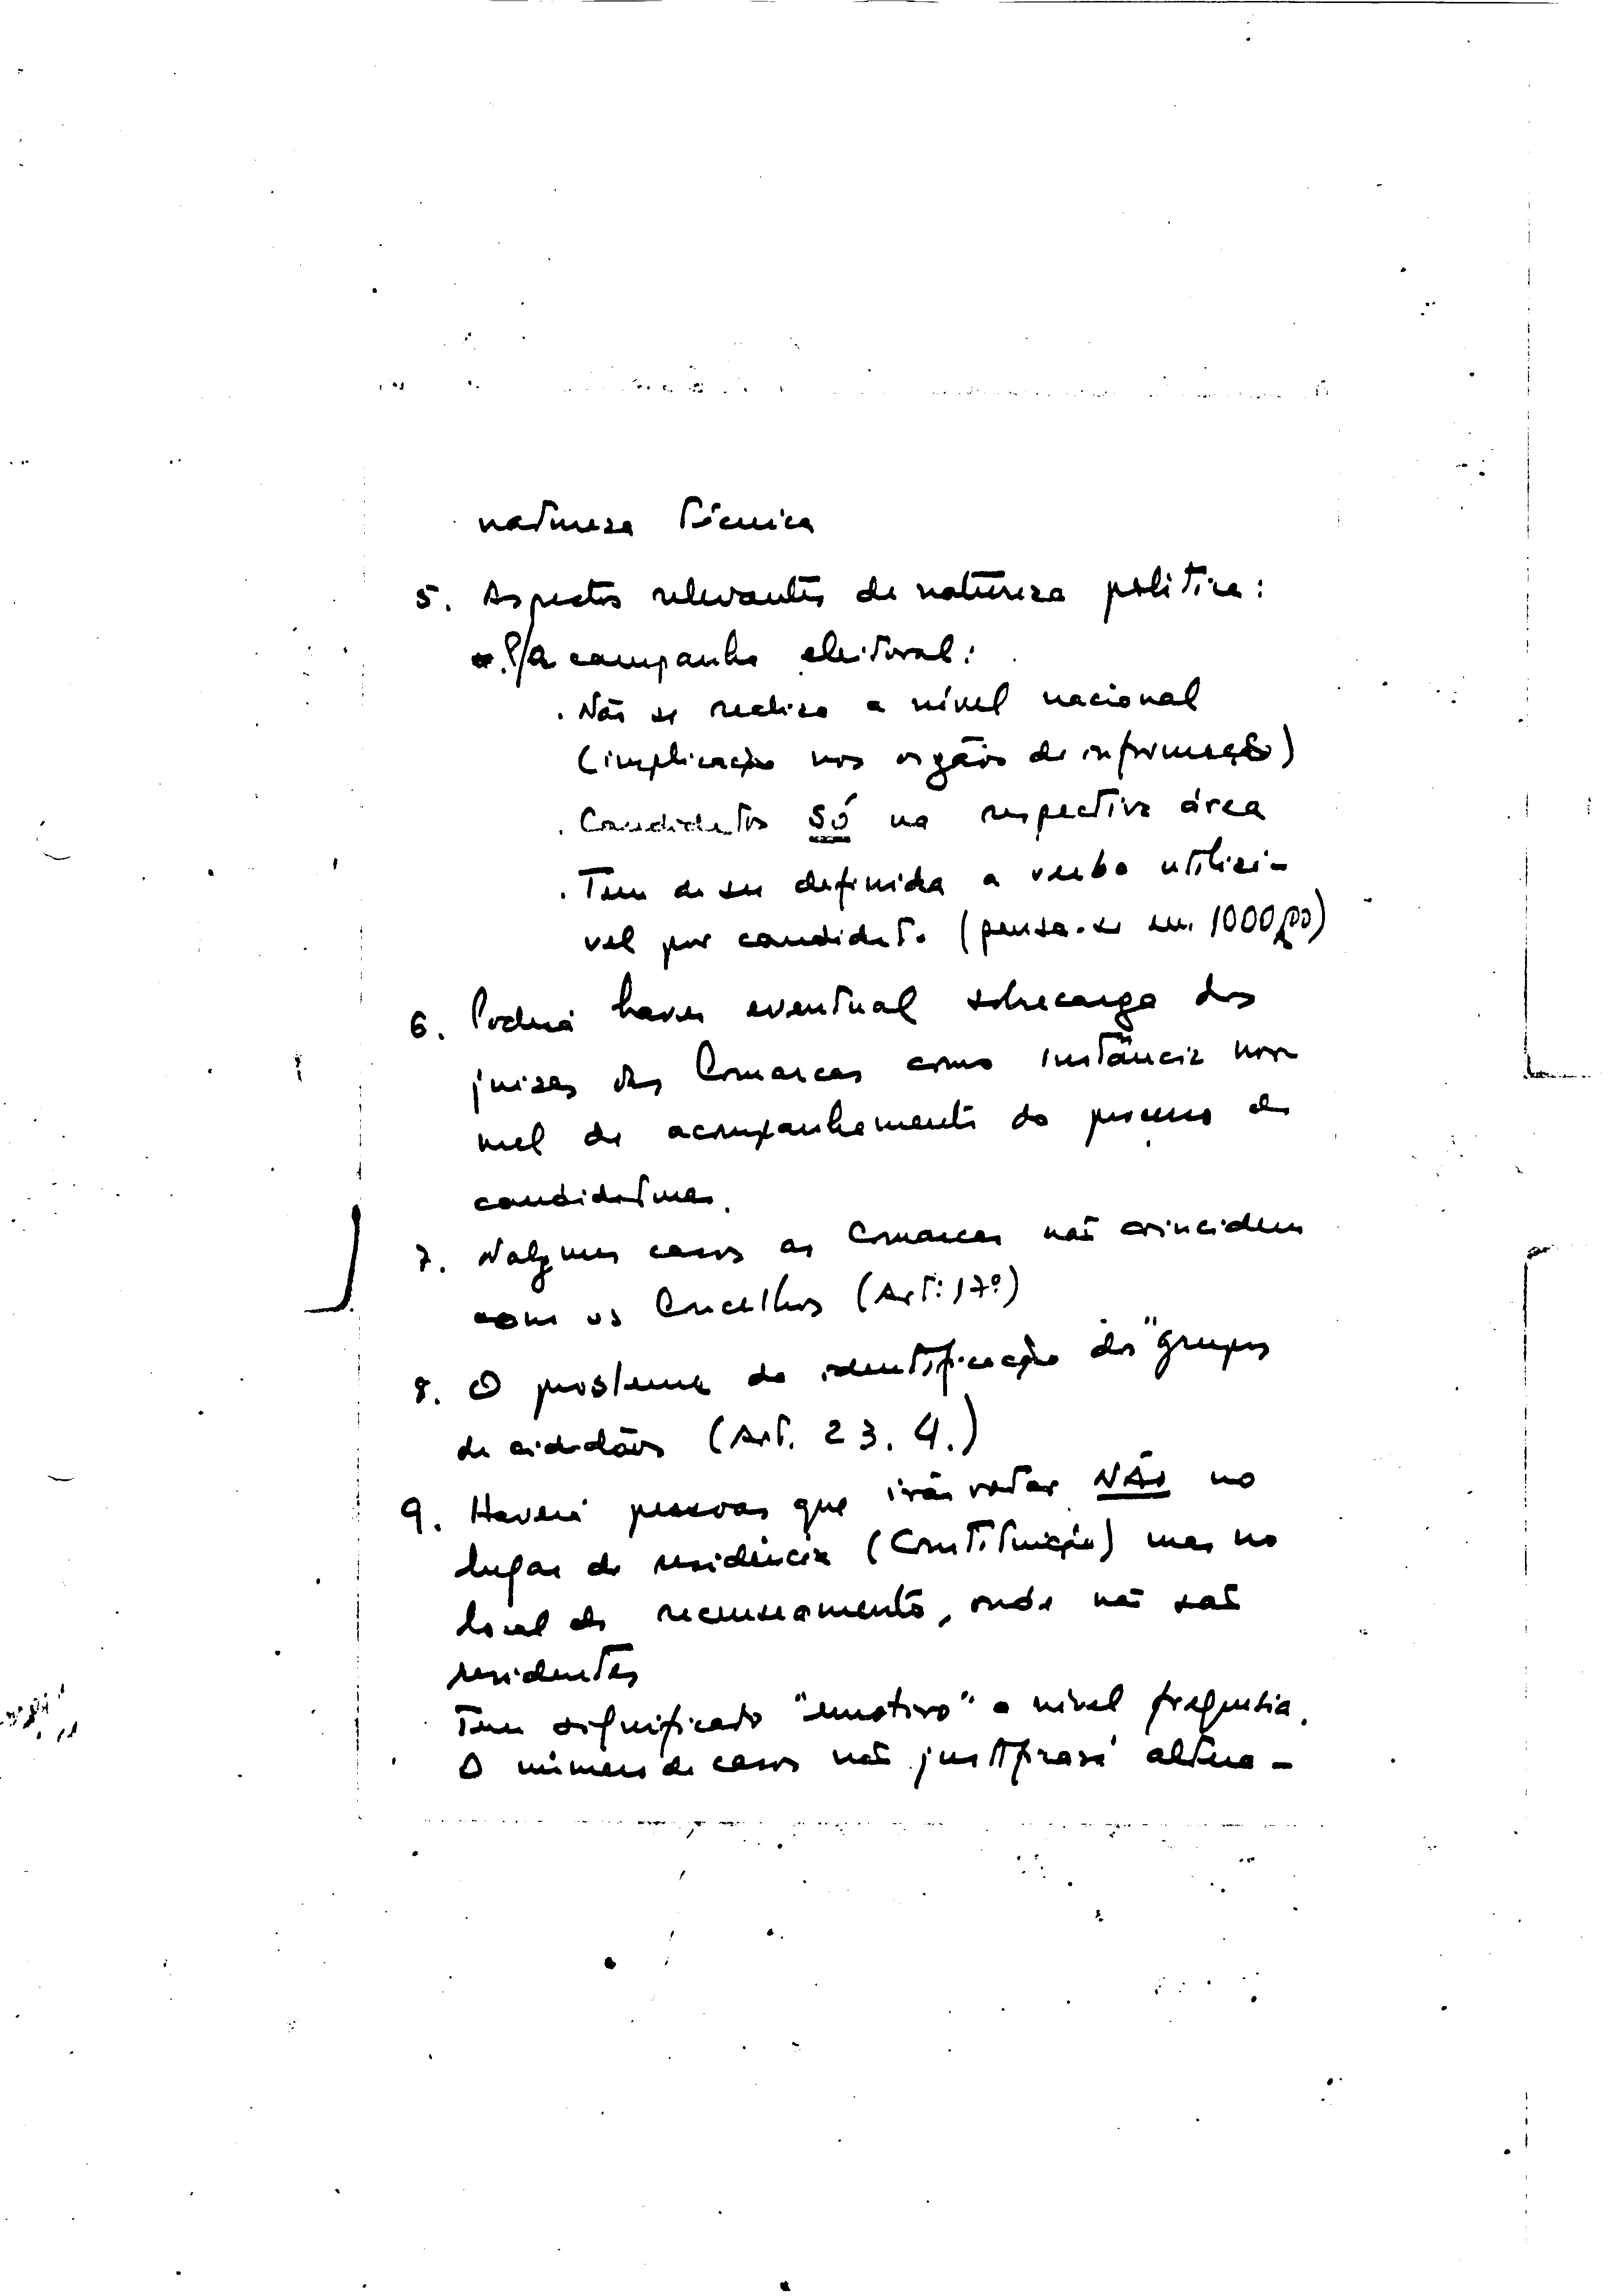 natureza técnica
5. Aspectos relevantes de natureza politica:
. P/a campanha eleitoral:
. Não se realiza a nível nacional
(implicação nos orgãos de informação)
. Candidatos só na respectiva área
. Tem de ser definida a verba utilizá-
vel por candidato (pensa-se em 1000$00)
6. Poderá haver eventual sobrecarga dos
juizes das Comarcas como instância nor
mal de acompanhamento do processo de
candidaturas.
7. Nalguns casos as Comarcas não coincidem
com os Concelhos (Art: 17º)
8. O problema da identificação dos "grupos
de cidadãos (Art. 23. 4.)
9. Haverá pessoas que irão votar NÃO no
lugar de residência (Constituição) mas no
local do recenseamento, onde não são
residentes
Tem significado "emotivo" a nível freguesia.
O número de casos não justificará altera-